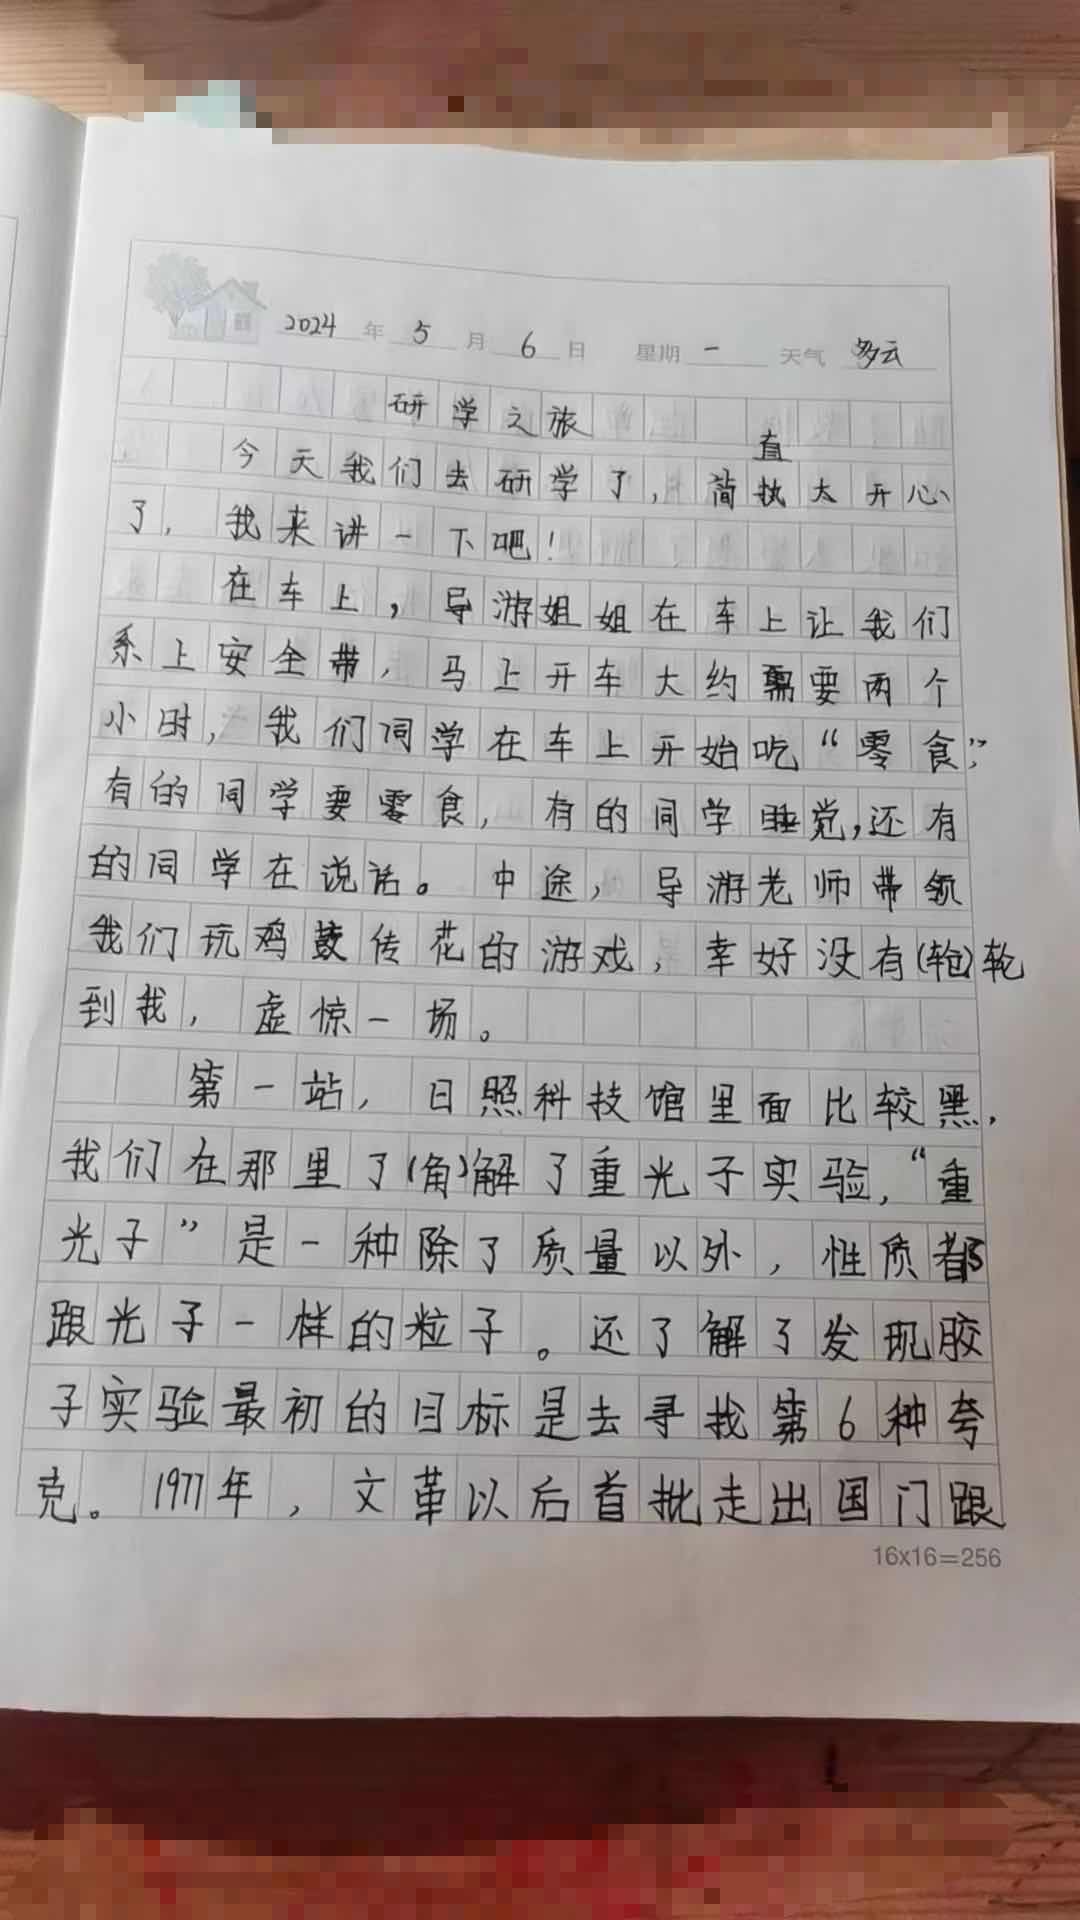 2024年 5月 6日 星期一 天气 多云
研学之旅
直
今天我们去研学了，简执太开心
了，我来讲一下吧！
在车上，导游姐姐在车上让我们
系上安全带，马上开车大约需要两个
小时，我们同学在车上开始吃“零食”，
有的同学要零食，有的同学睡觉，还有
的同学在说话。中途，导游老师带领
我们玩鸡鼓传花的游戏，幸好没有(轮)轮
到我，虚惊一场。
第一站，日照科技馆里面比较黑，
我们在那里了(角)解了重光子实验，“重
光子”是一种除了质量以外，性质都
跟光子一样的粒子。还了解了发现胶
子实验最初的目标是去寻找第6种夸
克。1977年，文革以后首批走出国门跟
16x16=256